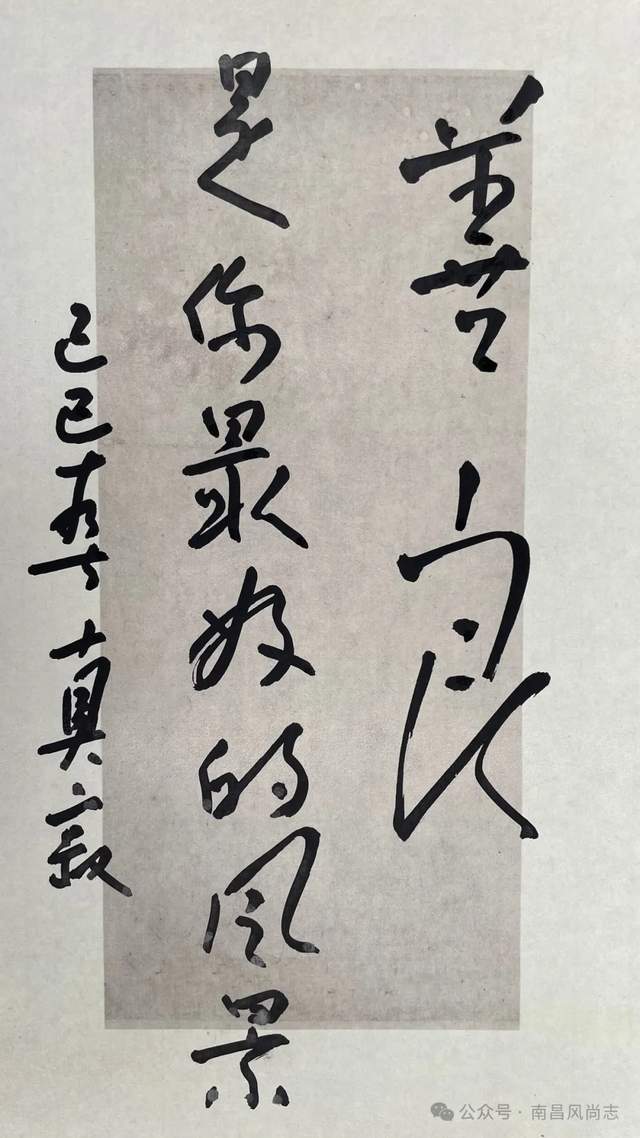 善良
是你最好的风景
乙巳 真寂
公众号·南昌风尚志